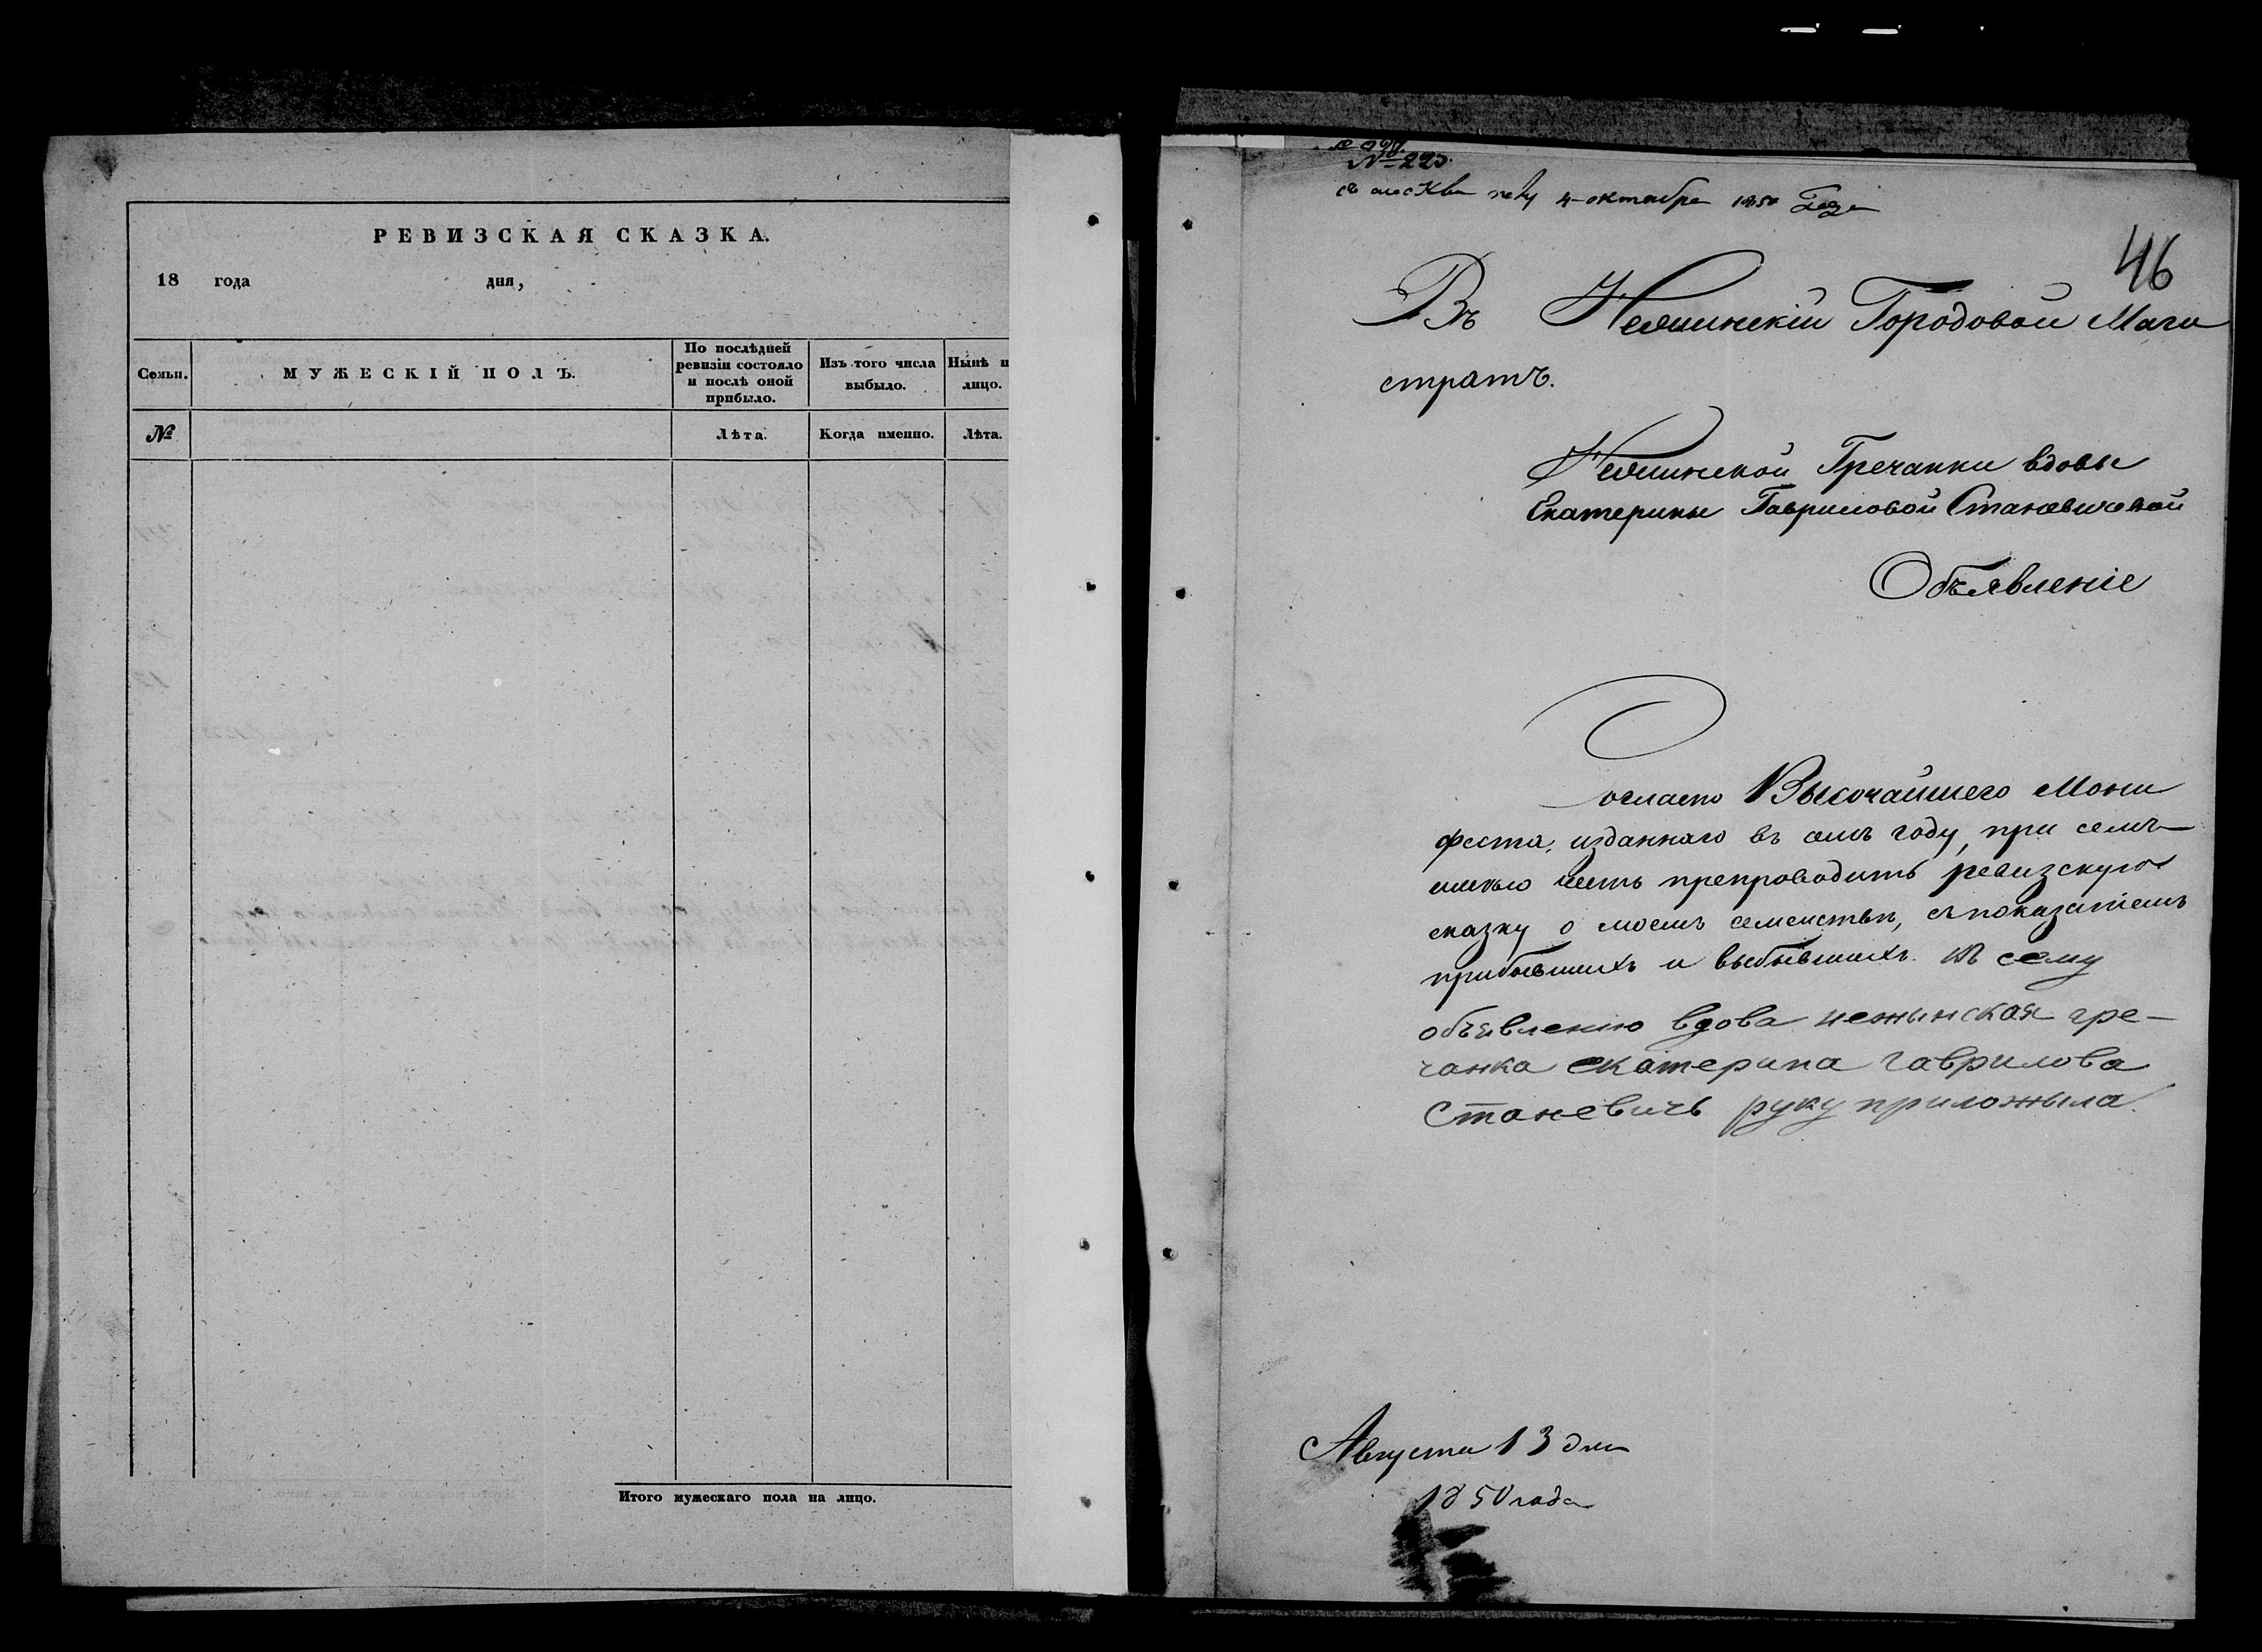 РЕВИЗСКАЯ СКАЗКА.
18 года дня,
Семьи.
МУЖЕСКІЙ ПОЛЪ.
По послѣдней
ревизіи состояло
и послѣ оной
прибыло.
Изъ того числа
выбыло.
Нынѣ н
лицо.
№
Лѣта.
Когда именно.
Лѣта.
Итого мужескаго пола на лицо.
№ 223.
4 октября 1850 года
46
Въ Нежинскій Городовой Маги
стратъ.
Нежинской Гречанки вдовы
Екатерины Гавриловой Становичовой
Объявленіе
Согласно Высочайшего Мани
феста, изданнаго въ семъ году, при семъ
имѣю честь препроводить ревизскую
сказку о моемъ семействѣ, съ показаніемъ
прибывшихъ и выбывшихъ. Къ сему
объявленію вдова нежинская гре-
чанка екатерина гаврилова
Станевичь руку приложыла.
Августа 13 дня
1850 года